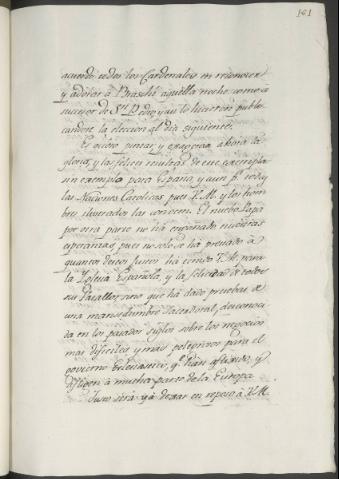 161
acuerdo todos los Cardenales en reconocer
y adorar á Braschi aquella noche como á
sucesor de Sn. Pedro, y aun lo hicieron publi-
candose la eleccion al dia siguiente.
Es ocioso pintar y exagerar ahora la
gloria, y las felices resultas de este exemplo
sin exemplo para España, y aun pa. todas
las Naciones Catolicas, pues V. M. y los hom-
bres ilustrados las conocen. El nuevo Papa
por otra parte no ha engañado nuestras
esperanzas, pues no solo se ha prestado á
quanto deseos justos ha tenido V. M. para
la Iglesia Española, y la felicidad de todos
sus Vasallos, sino que há dado pruebas de
una mansedumbre Sacerdotal, desconoci-
da en los pasados siglos sobre los negocios
mas dificiles y mas peligrosos para el
govierno Eclesiastico, qe. han afligido, y
afligen á mucha parte de la Europa.
Justo será yá dexar en reposo á V. M.